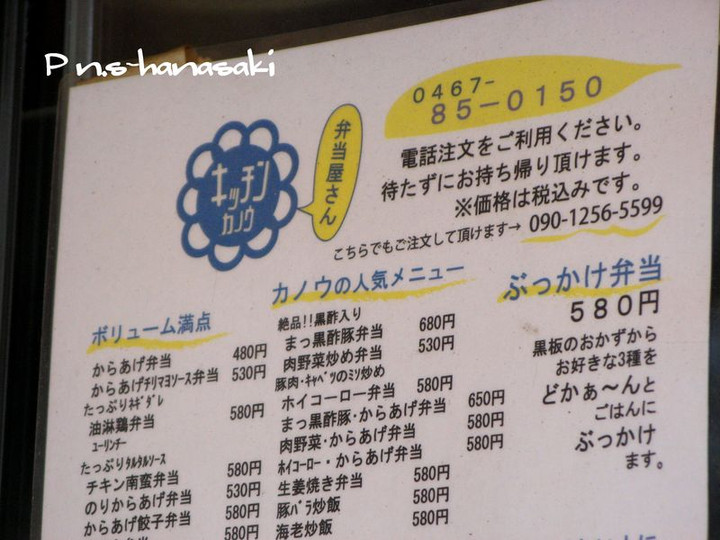 P n.s-hanasaki
0467-
85-0150
弁当屋さん
キッチン
カノウ
電話注文をご利用ください。
待たずにお持ち帰り頂けます。
※価格は税込みです。
こちらでもご注文して頂けます→ 090-1256-5599
ボリューム満点
からあげ弁当 480円
からあげチリマヨソース弁当 530円
たっぷりネギダレ
油淋鶏弁当 580円
ユーリンチー
たっぷりタルタルソース
チキン南蛮弁当 580円
のりからあげ弁当 530円
からあげ餃子弁当 580円
580円
カノウの人気メニュー
絶品!!黒酢入り
まっ黒酢豚弁当 680円
肉野菜炒め弁当 530円
豚肉・キャベツのミソ炒め
ホイコーロー弁当 580円
まっ黒酢豚・からあげ弁当 650円
肉野菜・からあげ弁当 580円
ホイコーロー・からあげ弁当 580円
生姜焼き弁当 580円
豚バラ炒飯 580円
海老炒飯 580円
ぶっかけ弁当
580円
黒板のおかずから
お好きな3種を
どかぁ〜んと
ごはんに
ぶっかけ
ます。